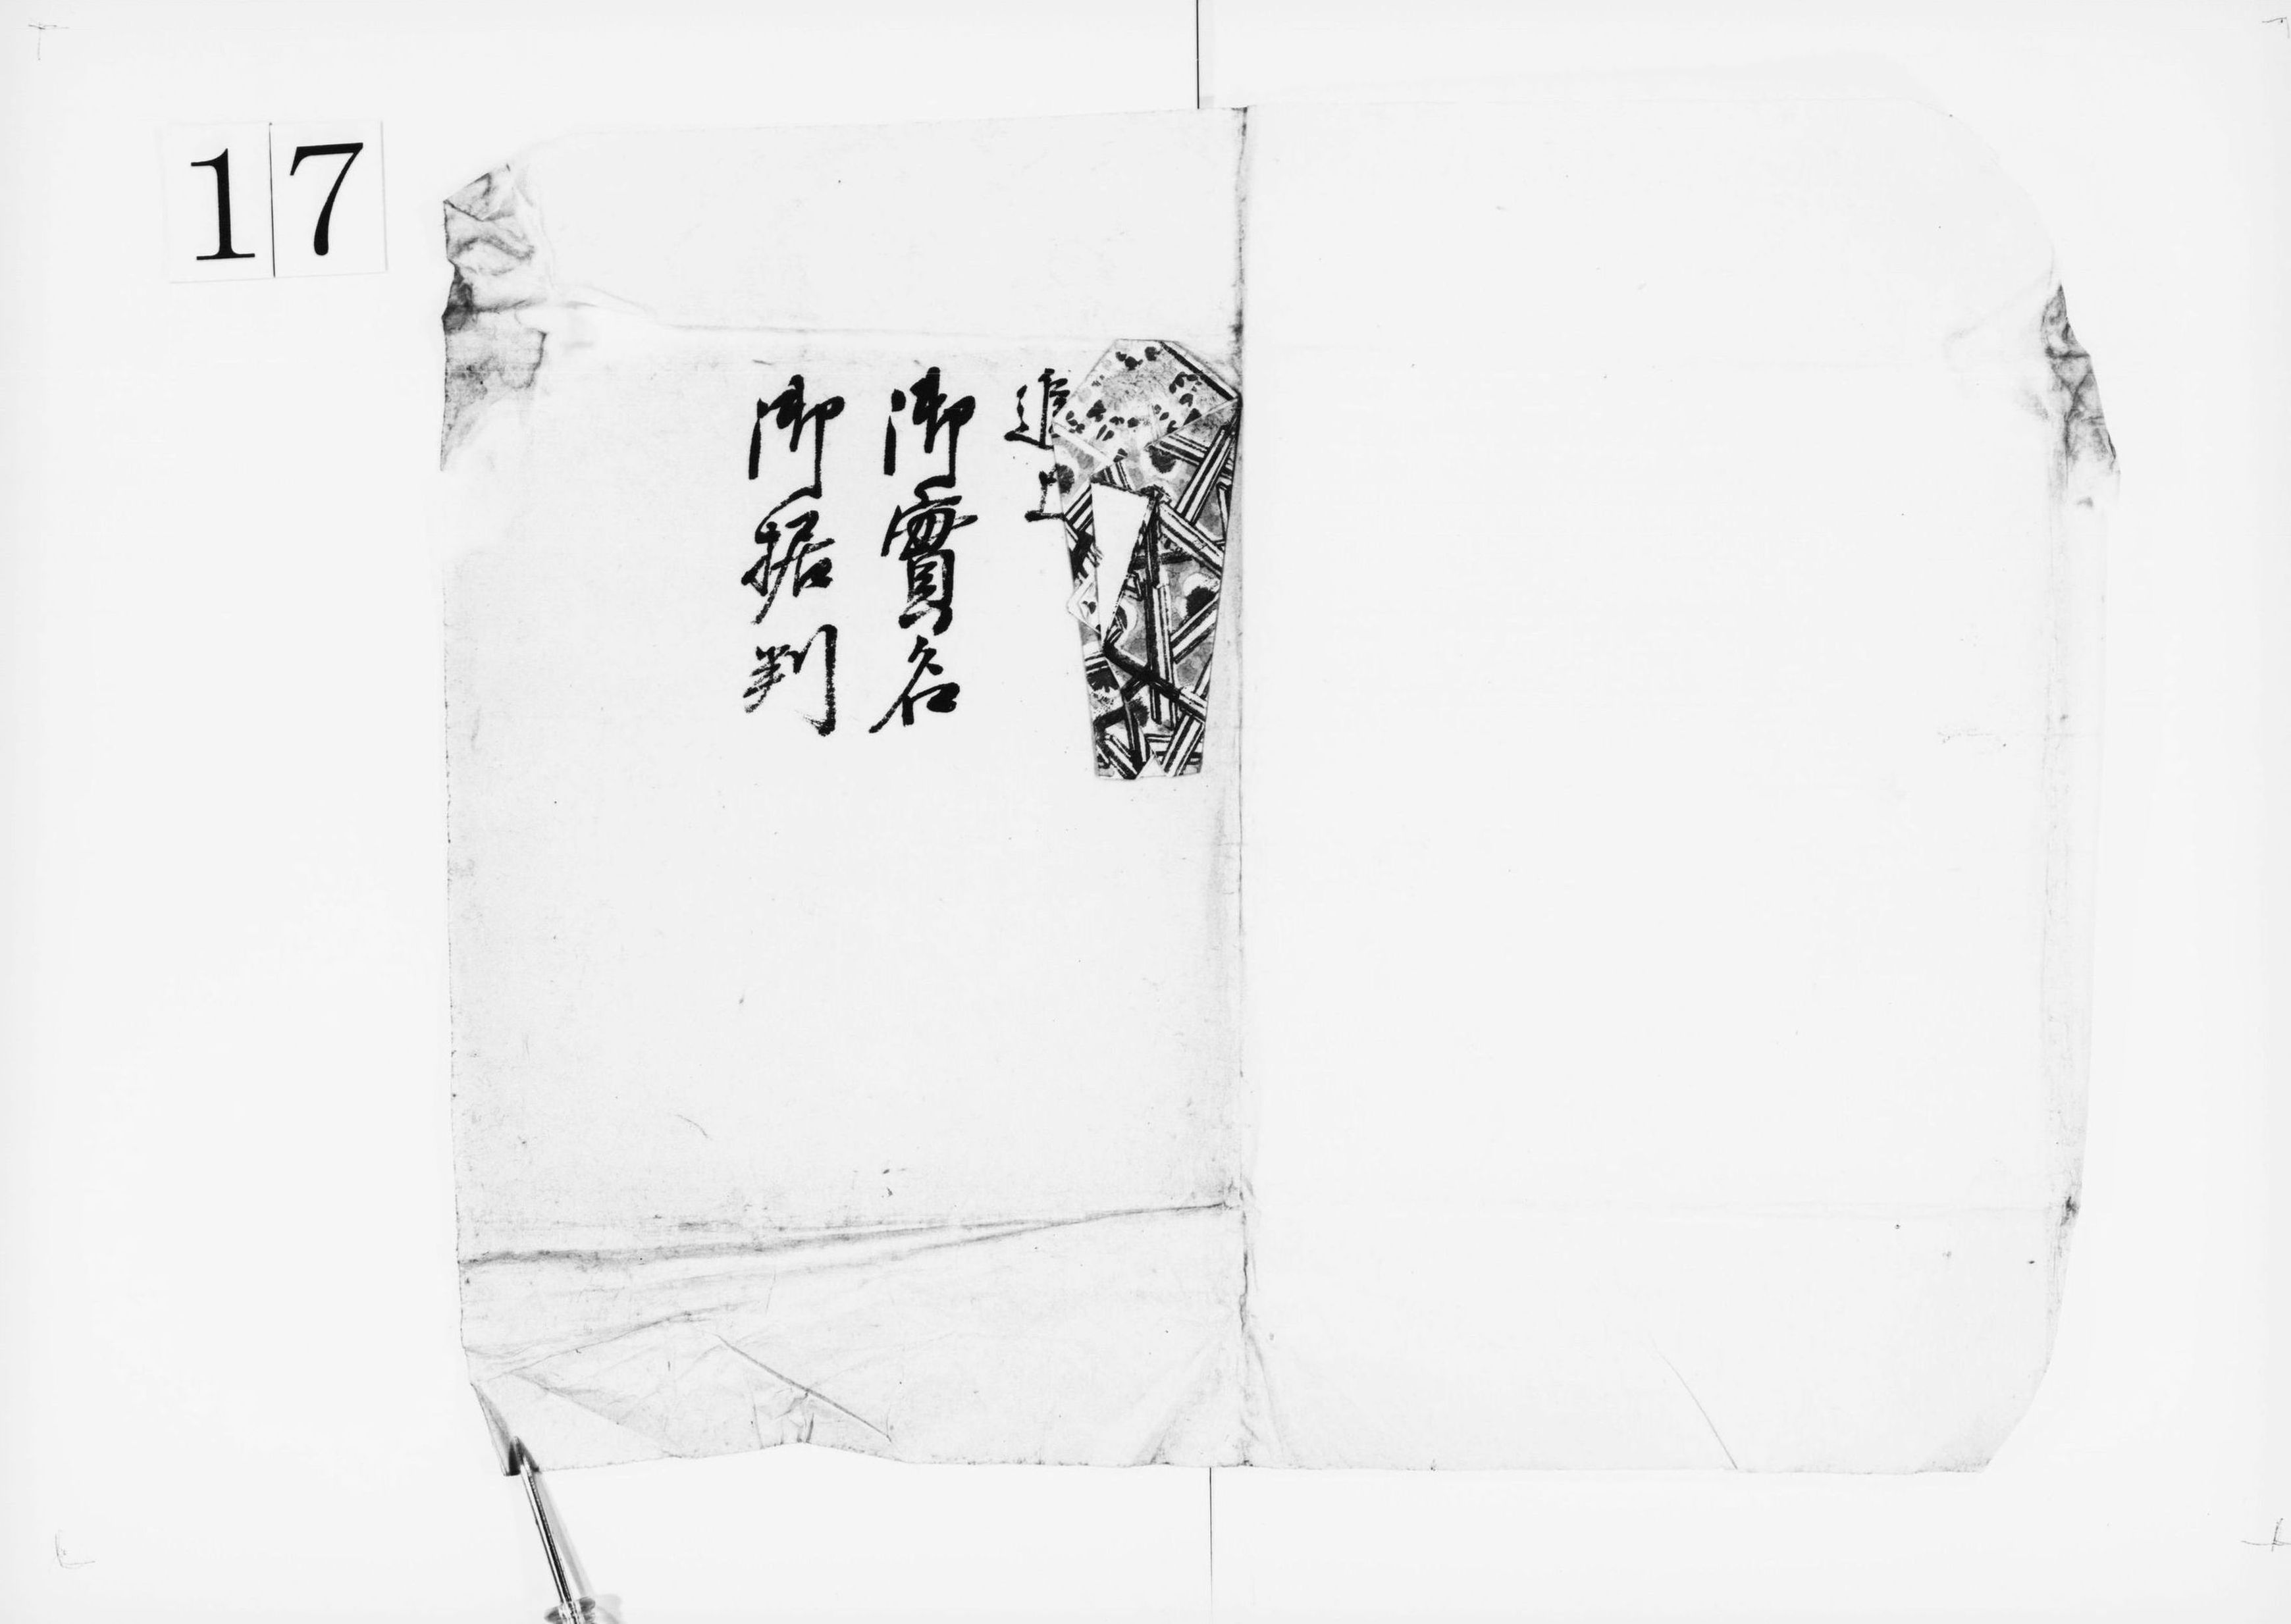 17
進上
御實名
御据判